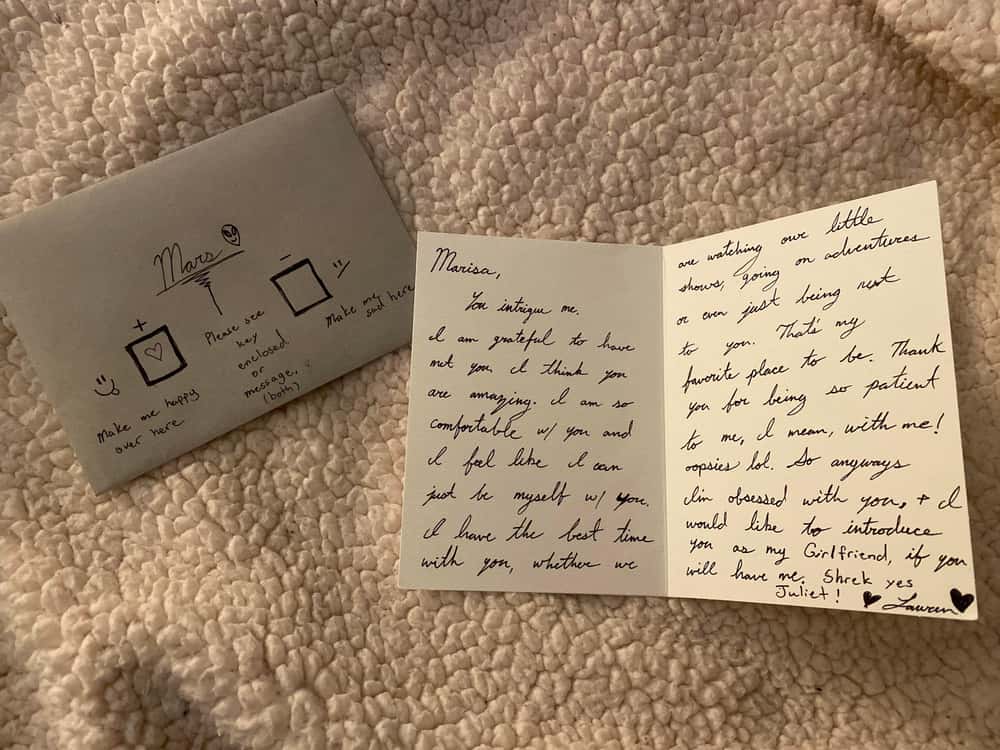 Mars
+
-
Make me happy
over here
Please see
key
enclosed
or
message,
(both)
Make me
sad here
Marisa,
You intrigue me.
I am grateful to have
met you I think you
are amazing. I am so
comfortable w/ you and
I feel like I can
just be myself w/ you.
I have the best time
with you, whether we
are watching our little
shows, going on adventures
or even just being next
to you. That's my
favorite place to be. Thank
you for being so patient
to me, I mean, with me!
oopsies lol. So anyways
I'm obsessed with you, + I
would like to introduce
you as my Girlfriend, if you
will have me. Shrek yes
Juliet! Lauren